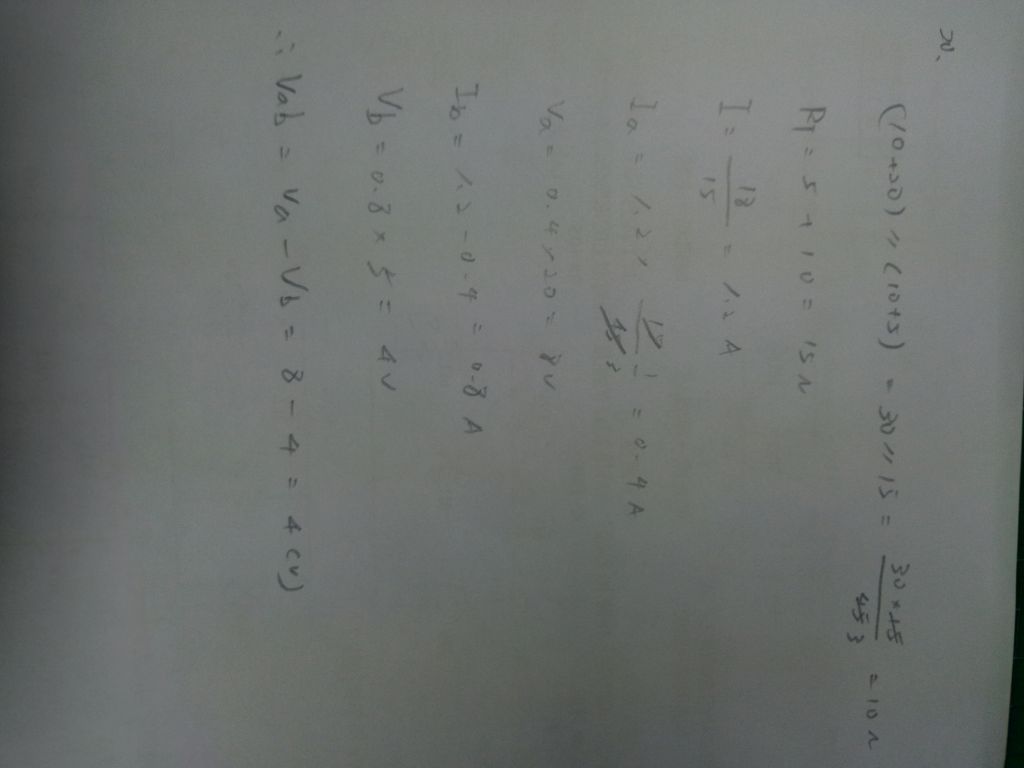 20.
(10+20) // (10+5) = 30 // 15 = 30×15 / 45 3 = 10Ω
RT = 5 + 10 = 15Ω
I = 18 / 15 = 1.2 A
Ia = 1.2 × 15 1 / 45 3 = 0.4 A
Va = 0.4 × 20 = 8V
Ib = 1.2 - 0.4 = 0.8 A
Vb = 0.8 × 5 = 4V
∴ Vab = Va - Vb = 8 - 4 = 4 (V)